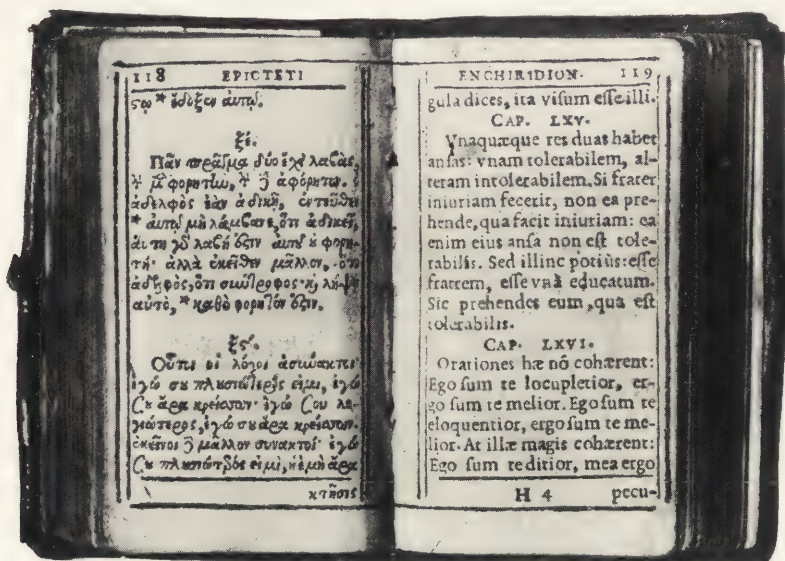 118 EPICTETI
ςῳ * ἔδοξεν αὐτῷ.
ξέ.
Πᾶν πρᾶγμα δύο ἔχει λαβὰς,
τ μ φορητὴν, τ ἀφόρητον. ὁ
ἀδελφὸς ἐὰν ἀδικῇ, ἐντεῦθεν
* αὐτὸ μὴ λάμβανε, ὅτι ἀδικεῖ,
αὕτη γδ λαβή ὅζιν αὐτοῦ ὐ φορη-
τή· ἀλλὰ ἐκεῖθεν μᾶλλον, ὅτι
ἀδελφὸς, ὅτι σύντροφος· κ λήψῃ
αὐτὸ, * καθὸ φορητόν ὅζιν.
ξς΄.
Οὗτοι οἱ λόγοι ἀσύνακτοι·
ἐγώ σου πλουσιώτερός εἰμι, ἐγώ
σου ἄρα κρείσσων· ἐγώ σου λο-
γιώτερος, ἐγώ σου ἄρα κρείσσων.
ἐκεῖνοι μᾶλλον συνακτοί· ἐγώ
σου πλουσιώτερός εἰμι, ἡ ἐμὴ ἄρα
κτῆσις
ENCHIRIDION. 119
gula dices, ita visum esse illi.
CAP. LXV.
Vnaquæque res duas habet
ansas: vnam tolerabilem, al-
teram intolerabilem. Si frater
iniuriam fecerit, non ea pre-
hende, qua facit iniuriam: ea
enim eius ansa non est tole-
rabilis. Sed illinc potiùs: esse
fratrem, esse vnà educatum.
Sic prehendes eum, qua est
tolerabilis.
CAP. LXVI.
Orationes hæ nõ cohærent:
Ego sum te locupletior, er-
go sum te melior. Ego sum te
eloquentior, ergo sum te me-
lior. At illæ magis cohærent:
Ego sum te ditior, mea ergo
H 4 pecu-